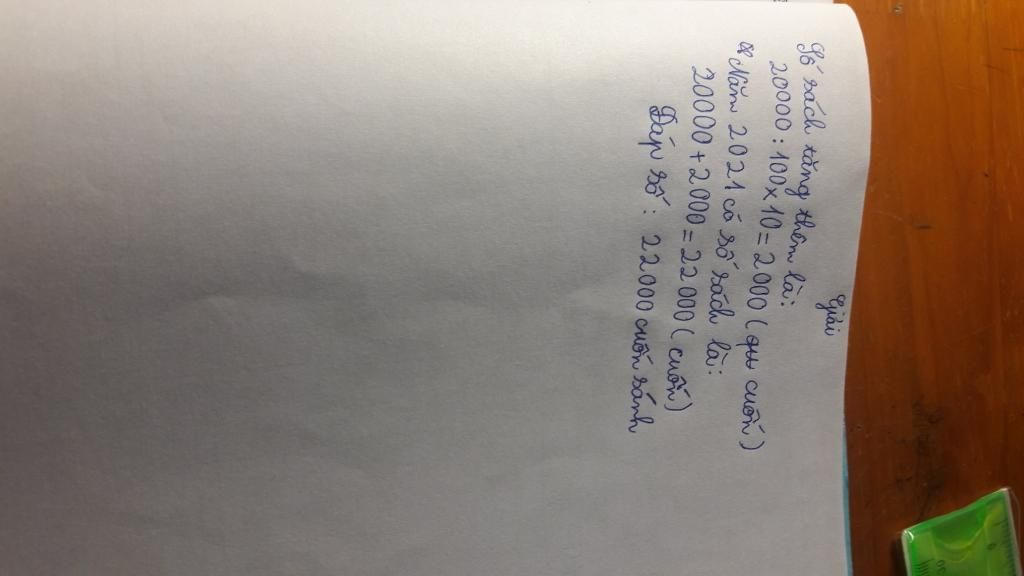 giải
Số sách tăng thêm là:
20000 : 100 x 10 = 2000 ( qu cuốn )
Năm 2021 có số sách là:
20000 + 2000 = 22 000 ( cuốn )
Đáp số : 22000 cuốn sánh